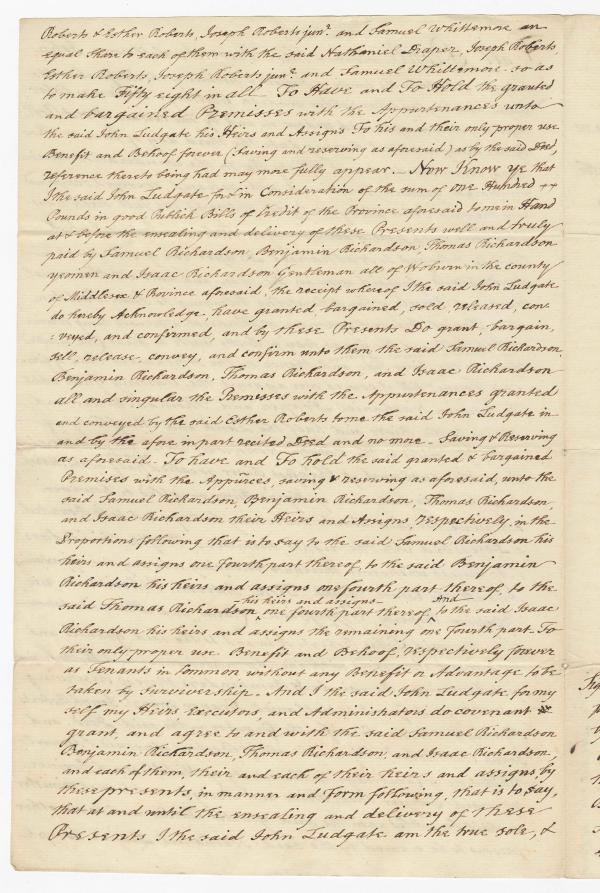 Roberts & Esther Roberts, Joseph Roberts junr. and Samuel Whittemore an
equal Share to each of them with the said Nathaniel Draper, Joseph Roberts,
Esther Roberts, Joseph Roberts junr. and Samuel Whittemore so as
to make Fifty eight in all. To Have and To Hold the granted
and bargained Premisses with the Appurtenances unto
the said John Ludgate his Heirs and Assigns To his and their only proper use
Benefit and Behoof forever (Saving and reserving as aforesaid) as by the said Deed,
reference thereto being had may more fully appear. Now Know ye that
I the said John Ludgate for & in Consideration of the sum of one Hundred
Pounds in good Publick Bills of Credit of the Province aforesaid to me in Hand
at & before the ensealing and delivery of these Presents well and truly
paid by Samuel Richardson, Benjamin Richardson, Thomas Richardson
yeomen and Isaac Richardson Gentleman all of Woburn in the county
of Middlesex & Province aforesaid, the receipt whereof I the said John Ludgate
do hereby Acknowledge, have granted, bargained, sold, released, con-
:veyed, and confirmed, and by these Presents Do grant, bargain,
sell, release, convey, and confirm unto them the said Samuel Richardson,
Benjamin Richardson, Thomas Richardson, and Isaac Richardson
all and singular the Premisses with the Appurtenances granted
and conveyed by the said Esther Roberts to me the said John Ludgate in
and by the afore in part recited Deed and no more. Saving & Reserving
as aforesaid. To have and To hold the said granted & bargained
Premises with the Appurces, saving & reserving as aforesaid, unto the
said Samuel Richardson, Benjamin Richardson, Thomas Richardson,
and Isaac Richardson their Heirs and Assigns, respectively, in the
Proportions following that is to say to the said Samuel Richardson his
heirs and assigns one fourth part thereof, to the said Benjamin
Richardson his heirs and assigns one fourth part thereof, to the
his heirs and assigns and
said Thomas Richardson ^ one fourth part thereof ^ to the said Isaac
Richardson his heirs and assigns the remaining one fourth part. To
their only proper use Benefit and Behoof, respectively forever
as Tenants in Common without any Benefit or Advantage to be
taken by Survivership. And I the said John Ludgate for my
self my Heirs, Executors, and Administrators do covenant
grant, and agree to and with the said Samuel Richardson
Benjamin Richardson, Thomas Richardson, and Isaac Richardson,
and each of them, their and each of their heirs and assigns, by
these presents, in manner and Form following, that is to say,
that at and until the ensealing and delivery of these
Presents I the said John Ludgate am the true sole, &